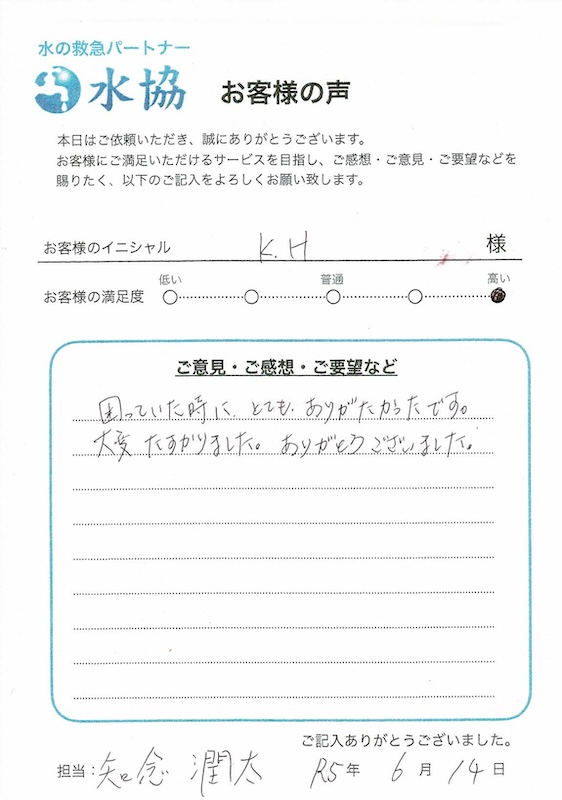 水の救急パートナー
水協 お客様の声
本日はご依頼いただき、誠にありがとうございます。
お客様にご満足いただけるサービスを目指し、ご感想・ご意見・ご要望などを
賜りたく、以下のご記入をよろしくお願い致します。
お客様のイニシャル K.H 様
低い 普通 高い
お客様の満足度
ご意見・ご感想・ご要望など
困っていた時に、とても、ありがたかったです。
大変 たすかりました。 ありがとうございました。
ご記入ありがとうございました。
担当:知念 潤太 R5年 6月 14日